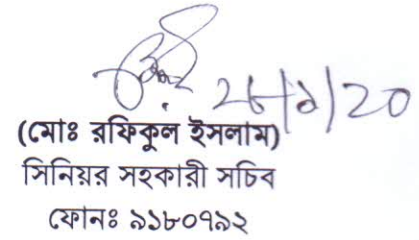 (মোঃ রফিকুল ইসলাম)
সিনিয়র সহকারী সচিব
ফোনঃ ৯১৮০৭৯২